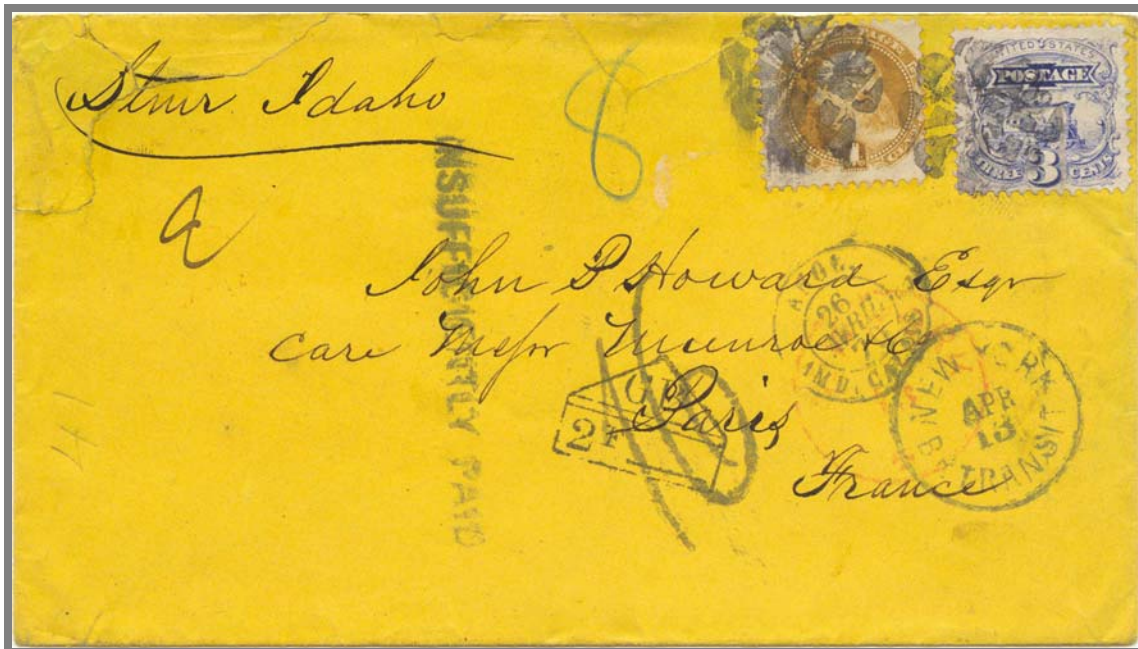 Stmr Idaho
8
UNITED STATES
POSTAGE
THREE 3 CENTS
INSUFFICIENTLY PAID
John P Howard Esqr
Care Messr Munroe & Co
Paris
France
26
AVRIL
CALAIS
GB
2F
NEW YORK
APR
13
TRANSIT
10
41